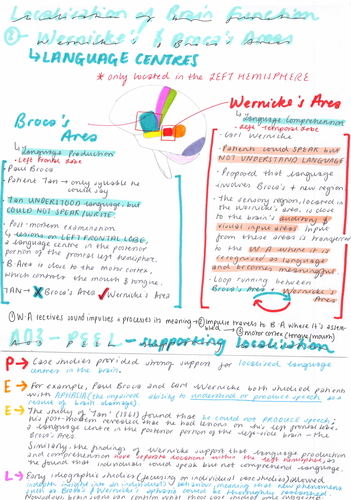 Localisation of Brain Function
② - Wernicke's & Broca's Areas
↳ LANGUAGE CENTRES
* only located in the LEFT HEMISPHERE
Broca's Area
↳ Language Production
• Left Frontal Lobe
• Paul Broca
• Patient Tan → only syllable he could say
• Tan UNDERSTOOD language, but COULD NOT SPEAK/WRITE
• Post-mortem examination
↳ lesions on LEFT FRONTAL LOBE,
a language centre in the posterior
portion of the frontal left hemisphere.
• B. Area is close to the motor cortex,
which controls the mouth & tongue.
TAN → X Broca's Area ✓ Wernicke's Area
Wernicke's Area
↳ Language Comprehension
• Left Temporal Lobe
• Carl Wernicke
• Patients could SPEAK but
NOT UNDERSTAND LANGUAGE
• Proposed that language
involves Broca's + new region
• The sensory region, located in
the Wernicke's area, is close
to the brain's auditory &
visual input areas. Input
from these areas is transferred
to the W.A where it is
recognised as language
and becomes meaningful
• Loop running between
Broca's Area & Wernicke's Area
① W.A receives sound impulses + processes its meaning → ② impulse travels to B.A where it's
→ ③ motor cortex (tongue/mouth)
AO3 - PEEL - supporting localisation
P → Case studies provided strong support for localised language
centres in the brain.
E → For example, Paul Broca and Carl Wernicke both studied patients
with APHASIA (the impaired ability to understand or produce speech as a
result of brain damage).
E → The study of 'Tan' (1861) found that he could not PRODUCE speech;
his post-mortem revealed that he had lesions on his left frontal lobe -
a language centre in the posterior portion of the left-side brain - the
Broca's Area.
Similarly, the findings of Wernicke support that language production
and comprehension have separate locations within the left hemisphere, as
he found that individuals could speak but not comprehend language.
L → Early idiographic studies (focusing on individual case studies) allowed
insight into an individual's
such as Broca's & Wernicke's aphasia could be